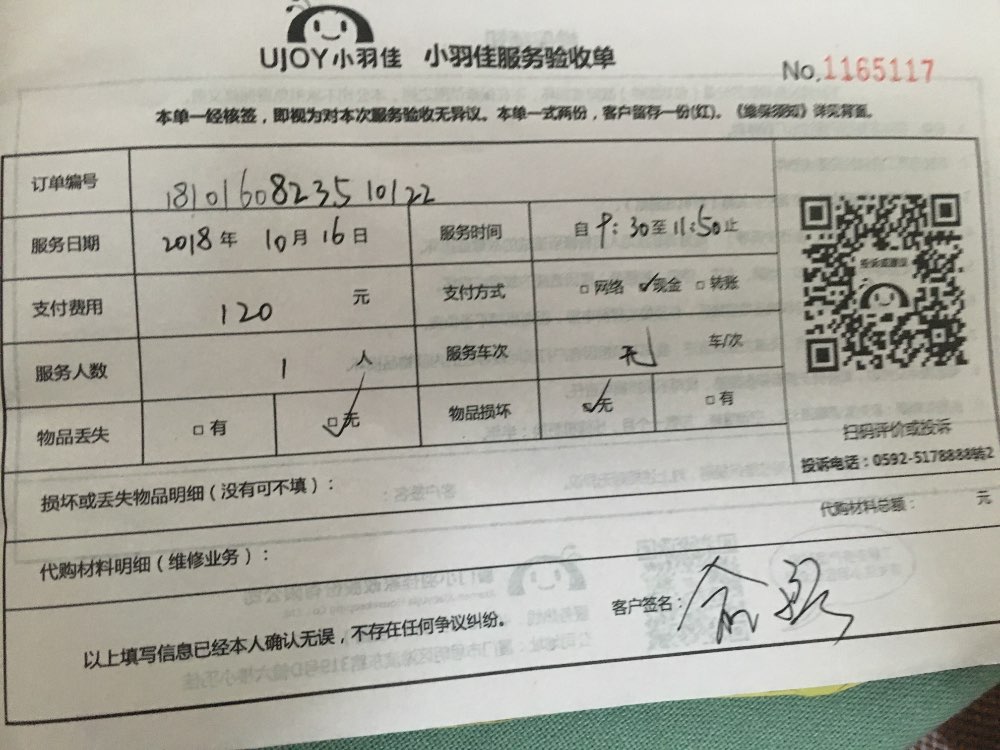 UJOY小羽佳 小羽佳服务验收单
No.1165117
本单一经核签，即视为对本次服务验收无异议。本单一式两份，客户留存一份(红)。《维保须知》详见背面。
订单编号 1810160823510122
服务日期 2018年 10月16日 服务时间 自9:30至11:50止
支付费用 120 元 支付方式 □网络 ☑现金 □转账
服务人数 1 人 服务车次 无 车/次
物品丢失 □有 ☑无 物品损坏 ☑无 □有
扫码评价或投诉
投诉电话：0592-5178888转2
损坏或丢失物品明细（没有可不填）：
代购材料总额： 元
代购材料明细（维修业务）：
客户签名：
以上填写信息已经本人确认无误，不存在任何争议纠纷。